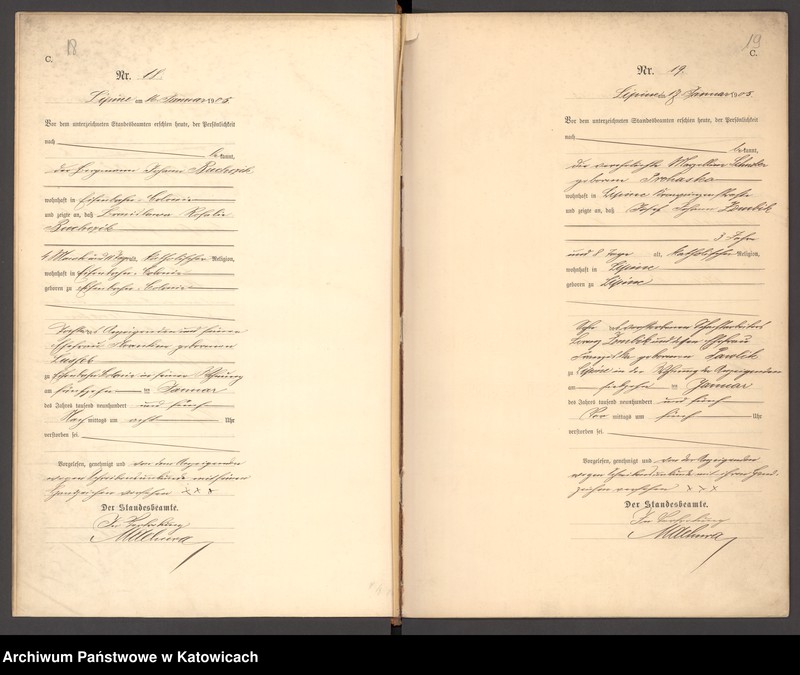 18
C.
Nr. 18.
Lipine am 16 Januar 1905.
Vor dem unterzeichneten Standesbeamten erschien heute, der Persönlichkeit
nach
bekannt,
der Bergmann Johann
wohnhaft in Eisenbahn-Colonie
und zeigte an, daß Rosalie
4 Monat alt, katholischer Religion,
wohnhaft in Eisenbahn-Colonie
geboren zu Eisenbahn-Colonie
Tochter des Anzeigenden und seiner
Ehefrau geborenen
zu Eisenbahn Colonie in seiner Wohnung
am fünfzehn ten Januar
des Jahres tausend neunhundert und fünf
Nach mittags um acht Uhr
verstorben sei.
Vorgelesen, genehmigt und von dem Anzeigenden
wegen Schreibensunkunde mit seinem
Handzeichen versehen xxx
Der Standesbeamte.
In Vertretung
19
C.
Nr. 19.
Lipine am 17 Januar 1905.
Vor dem unterzeichneten Standesbeamten erschien heute, der Persönlichkeit
nach
bekannt,
die verehelichte
geborene Prohaska
wohnhaft in Lipine
und zeigte an, daß Josef Johann
3 Jahr
und 8 Tage alt, katholischer Religion,
wohnhaft in Lipine
geboren zu Lipine
Sohn des verstorbenen
Franz und dessen Ehefrau
Franziska geborenen Pawlik
zu Lipine in der Wohnung der Anzeigenden
am siebzehn ten Januar
des Jahres tausend neunhundert und fünf
Vor mittags um fünf Uhr
verstorben sei.
Vorgelesen, genehmigt und von der Anzeigenden
wegen Schreibensunkunde mit ihrem Hand-
zeichen versehen xxx
Der Standesbeamte.
In Vertretung
Archiwum Państwowe w Katowicach